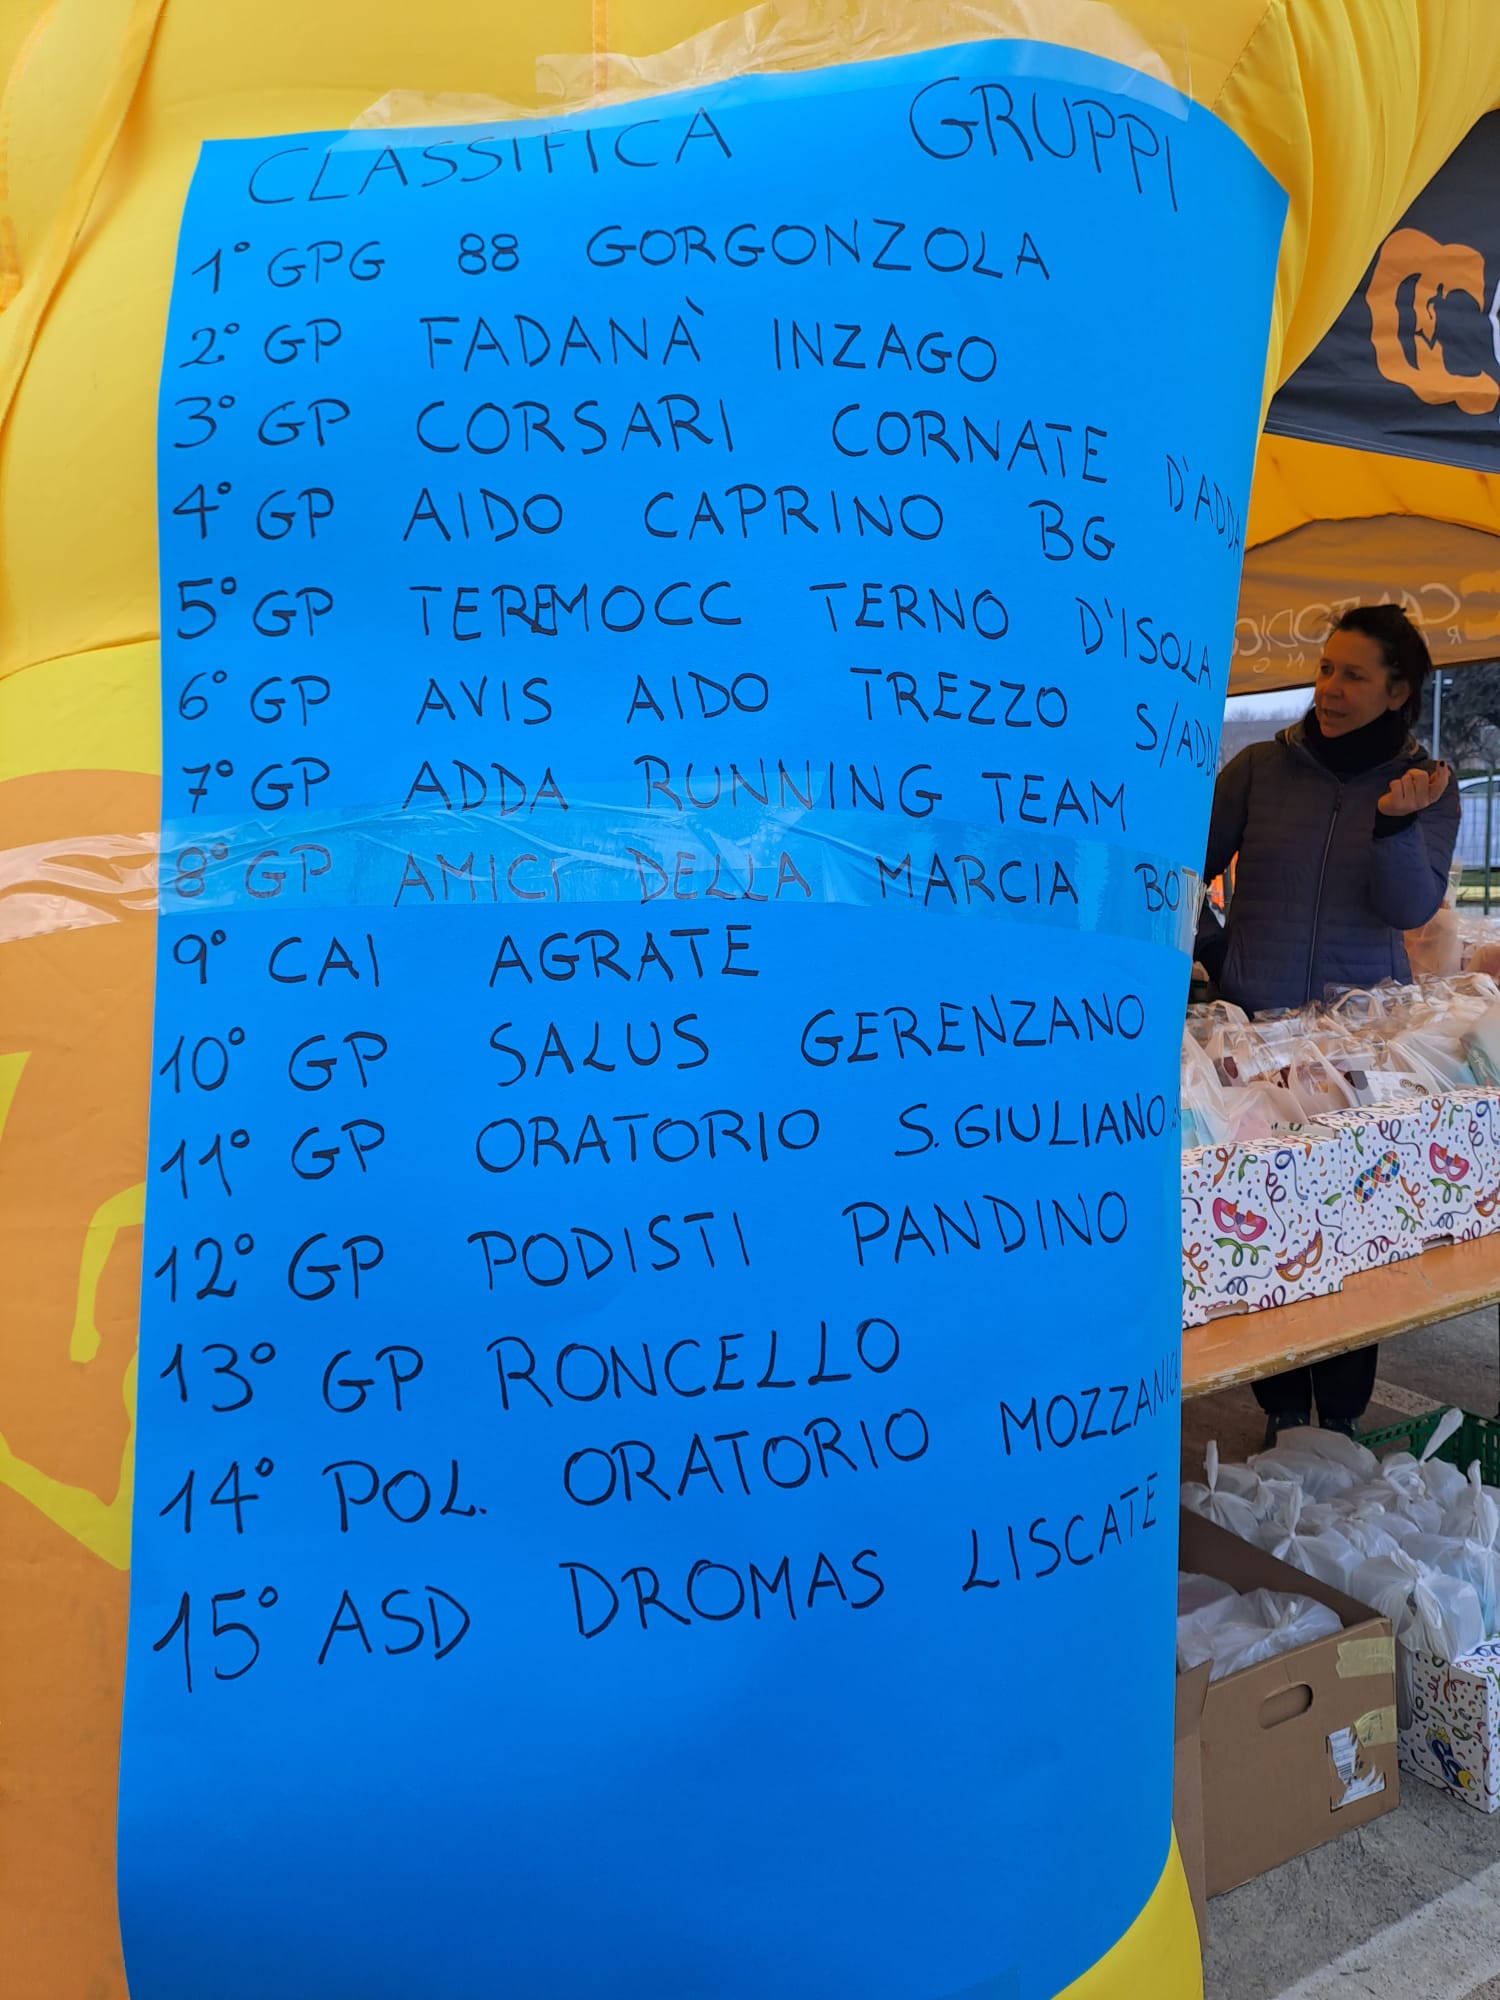 CLASSIFICA GRUPPI
1° GPG 88 GORGONZOLA
2° GP FADANÀ INZAGO
3° GP CORSARI CORNATE D'ADDA
4° GP AIDO CAPRINO BG
5° GP TEREMOCC TERNO D'ISOLA
6° GP AVIS AIDO TREZZO S/ADDA
7° GP ADDA RUNNING TEAM
8° GP AMICI DELLA MARCIA
9° CAI AGRATE
10° GP SALUS GERENZANO
11° GP ORATORIO S. GIULIANO
12° GP PODISTI PANDINO
13° GP RONCELLO
14° POL. ORATORIO MOZZANICA
15° ASD DROMAS LISCATE